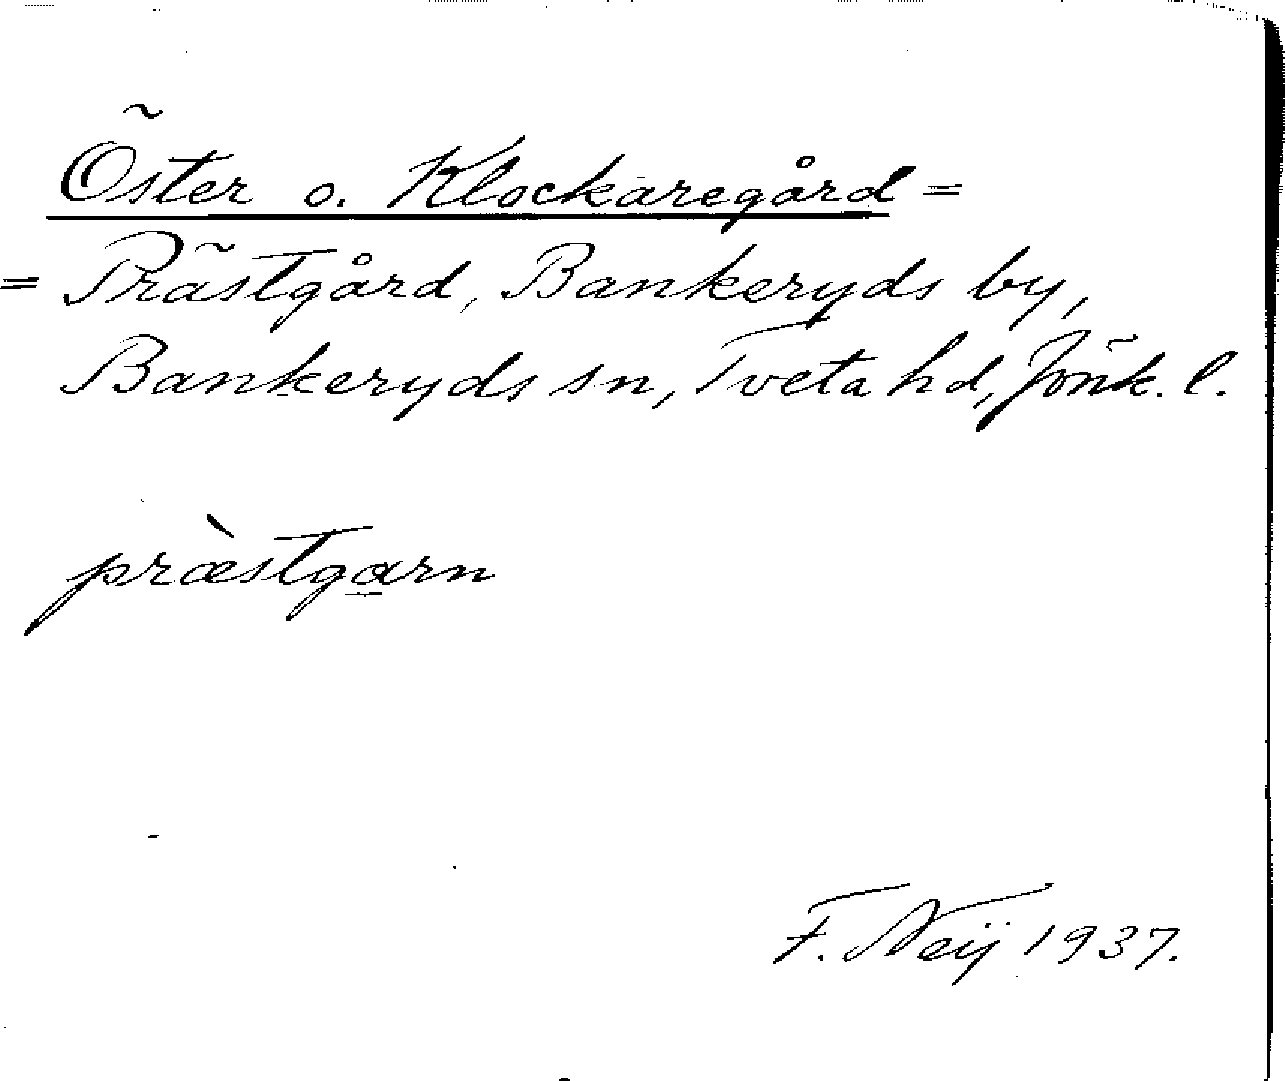 Öster o. Klockaregård =
= Prästgård, Bankeryds by,
Bankeryds sn, Tveta hd, Jönk. l.
præ̀stga̲rn
F. Neij 1937.